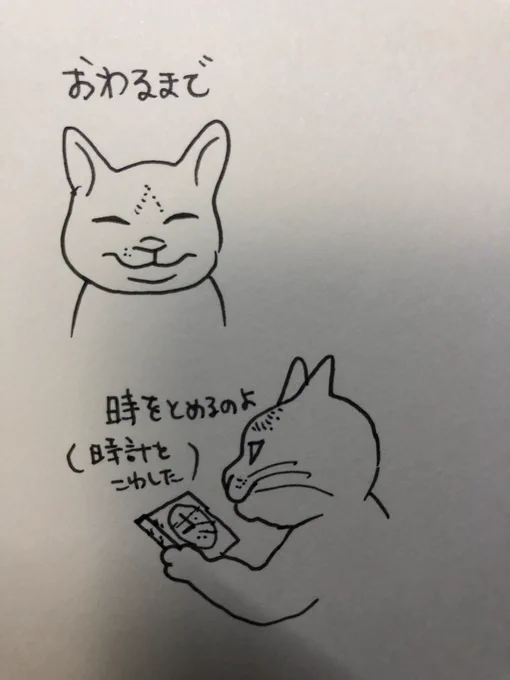 おわるまで
時をとめるのよ
(時計を
こわした)